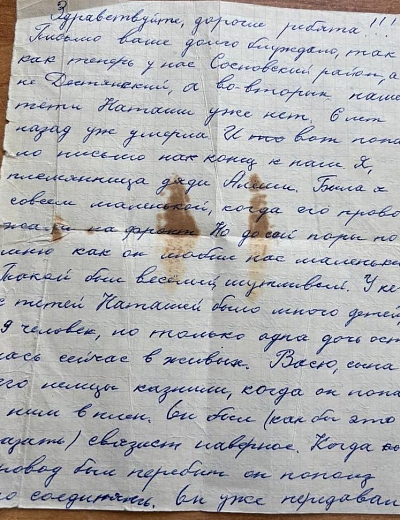 Здравствуйти, дорогие ребята!!!
Письмо ваше долго блуждало, так
как теперь у нас Сосновский район, а
не Деснянский, а во-вторых наше
тети Наташи уже нет. 6 лет
назад уж умерла И вот попа
ло письмо нак конец к нам Я,
племянница дяди Алеши. Была я
совсем маленькой, когда его прово
жали на фронт Но до сей поры по
мню как он любил нас маленьки
Такой был весёлый шутливый. У не
с тётей Наташей было много детей,
9 человек, но только одна дочь ост
лась сейчас в живых. Васю, сына
его немцы казнили, когда он попа
к ним в плен. Он был (как бы это
казать) связист наверное. Когда
овод был перебит он пополз
его соединять. Он уже передавал